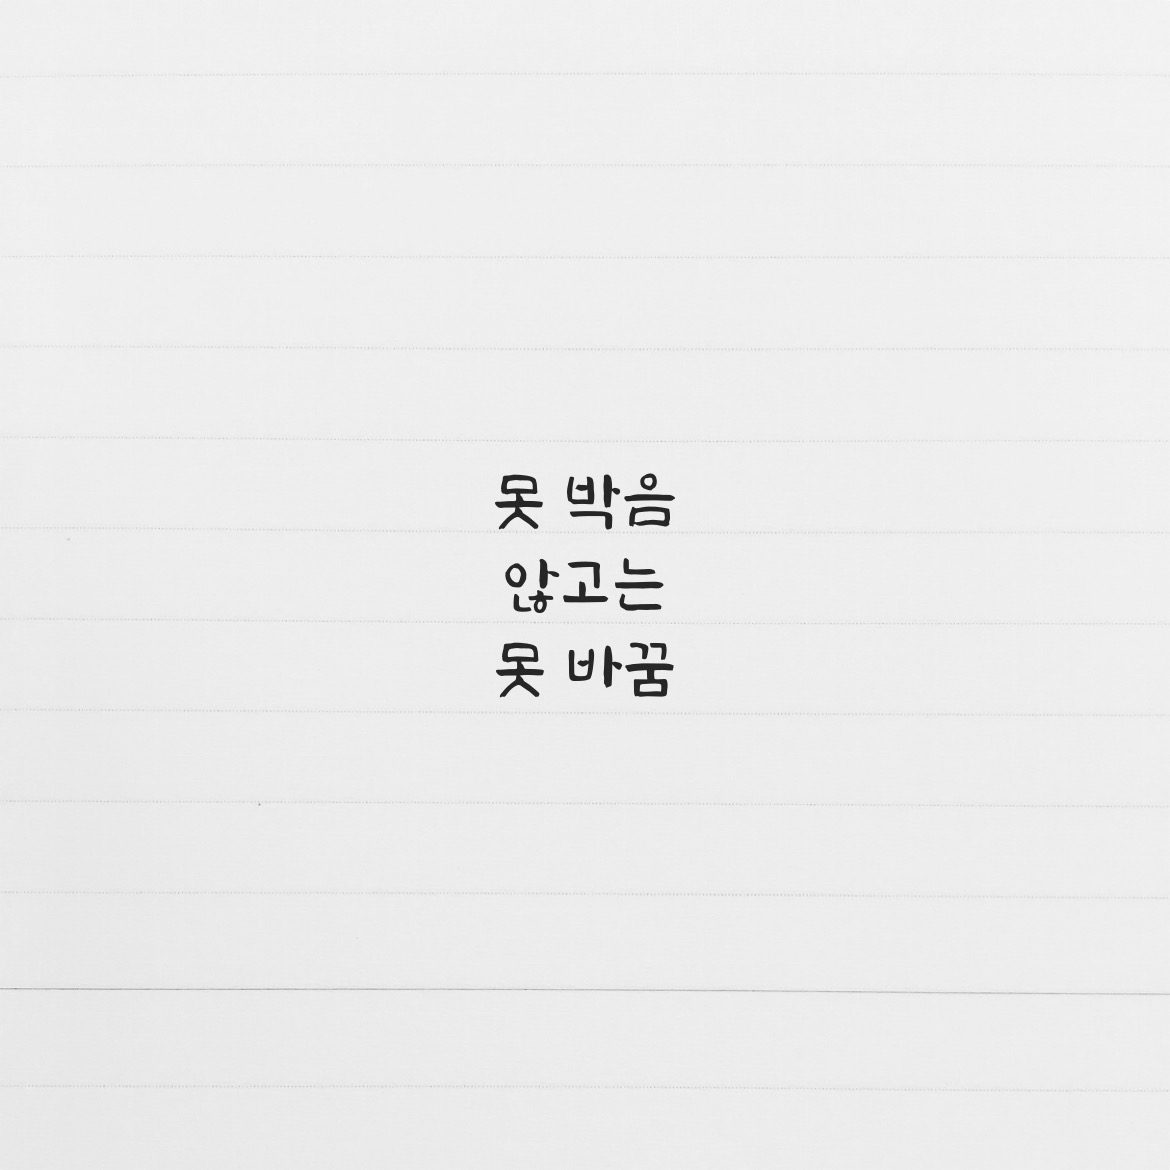 못 박음
않고는
못 바꿈